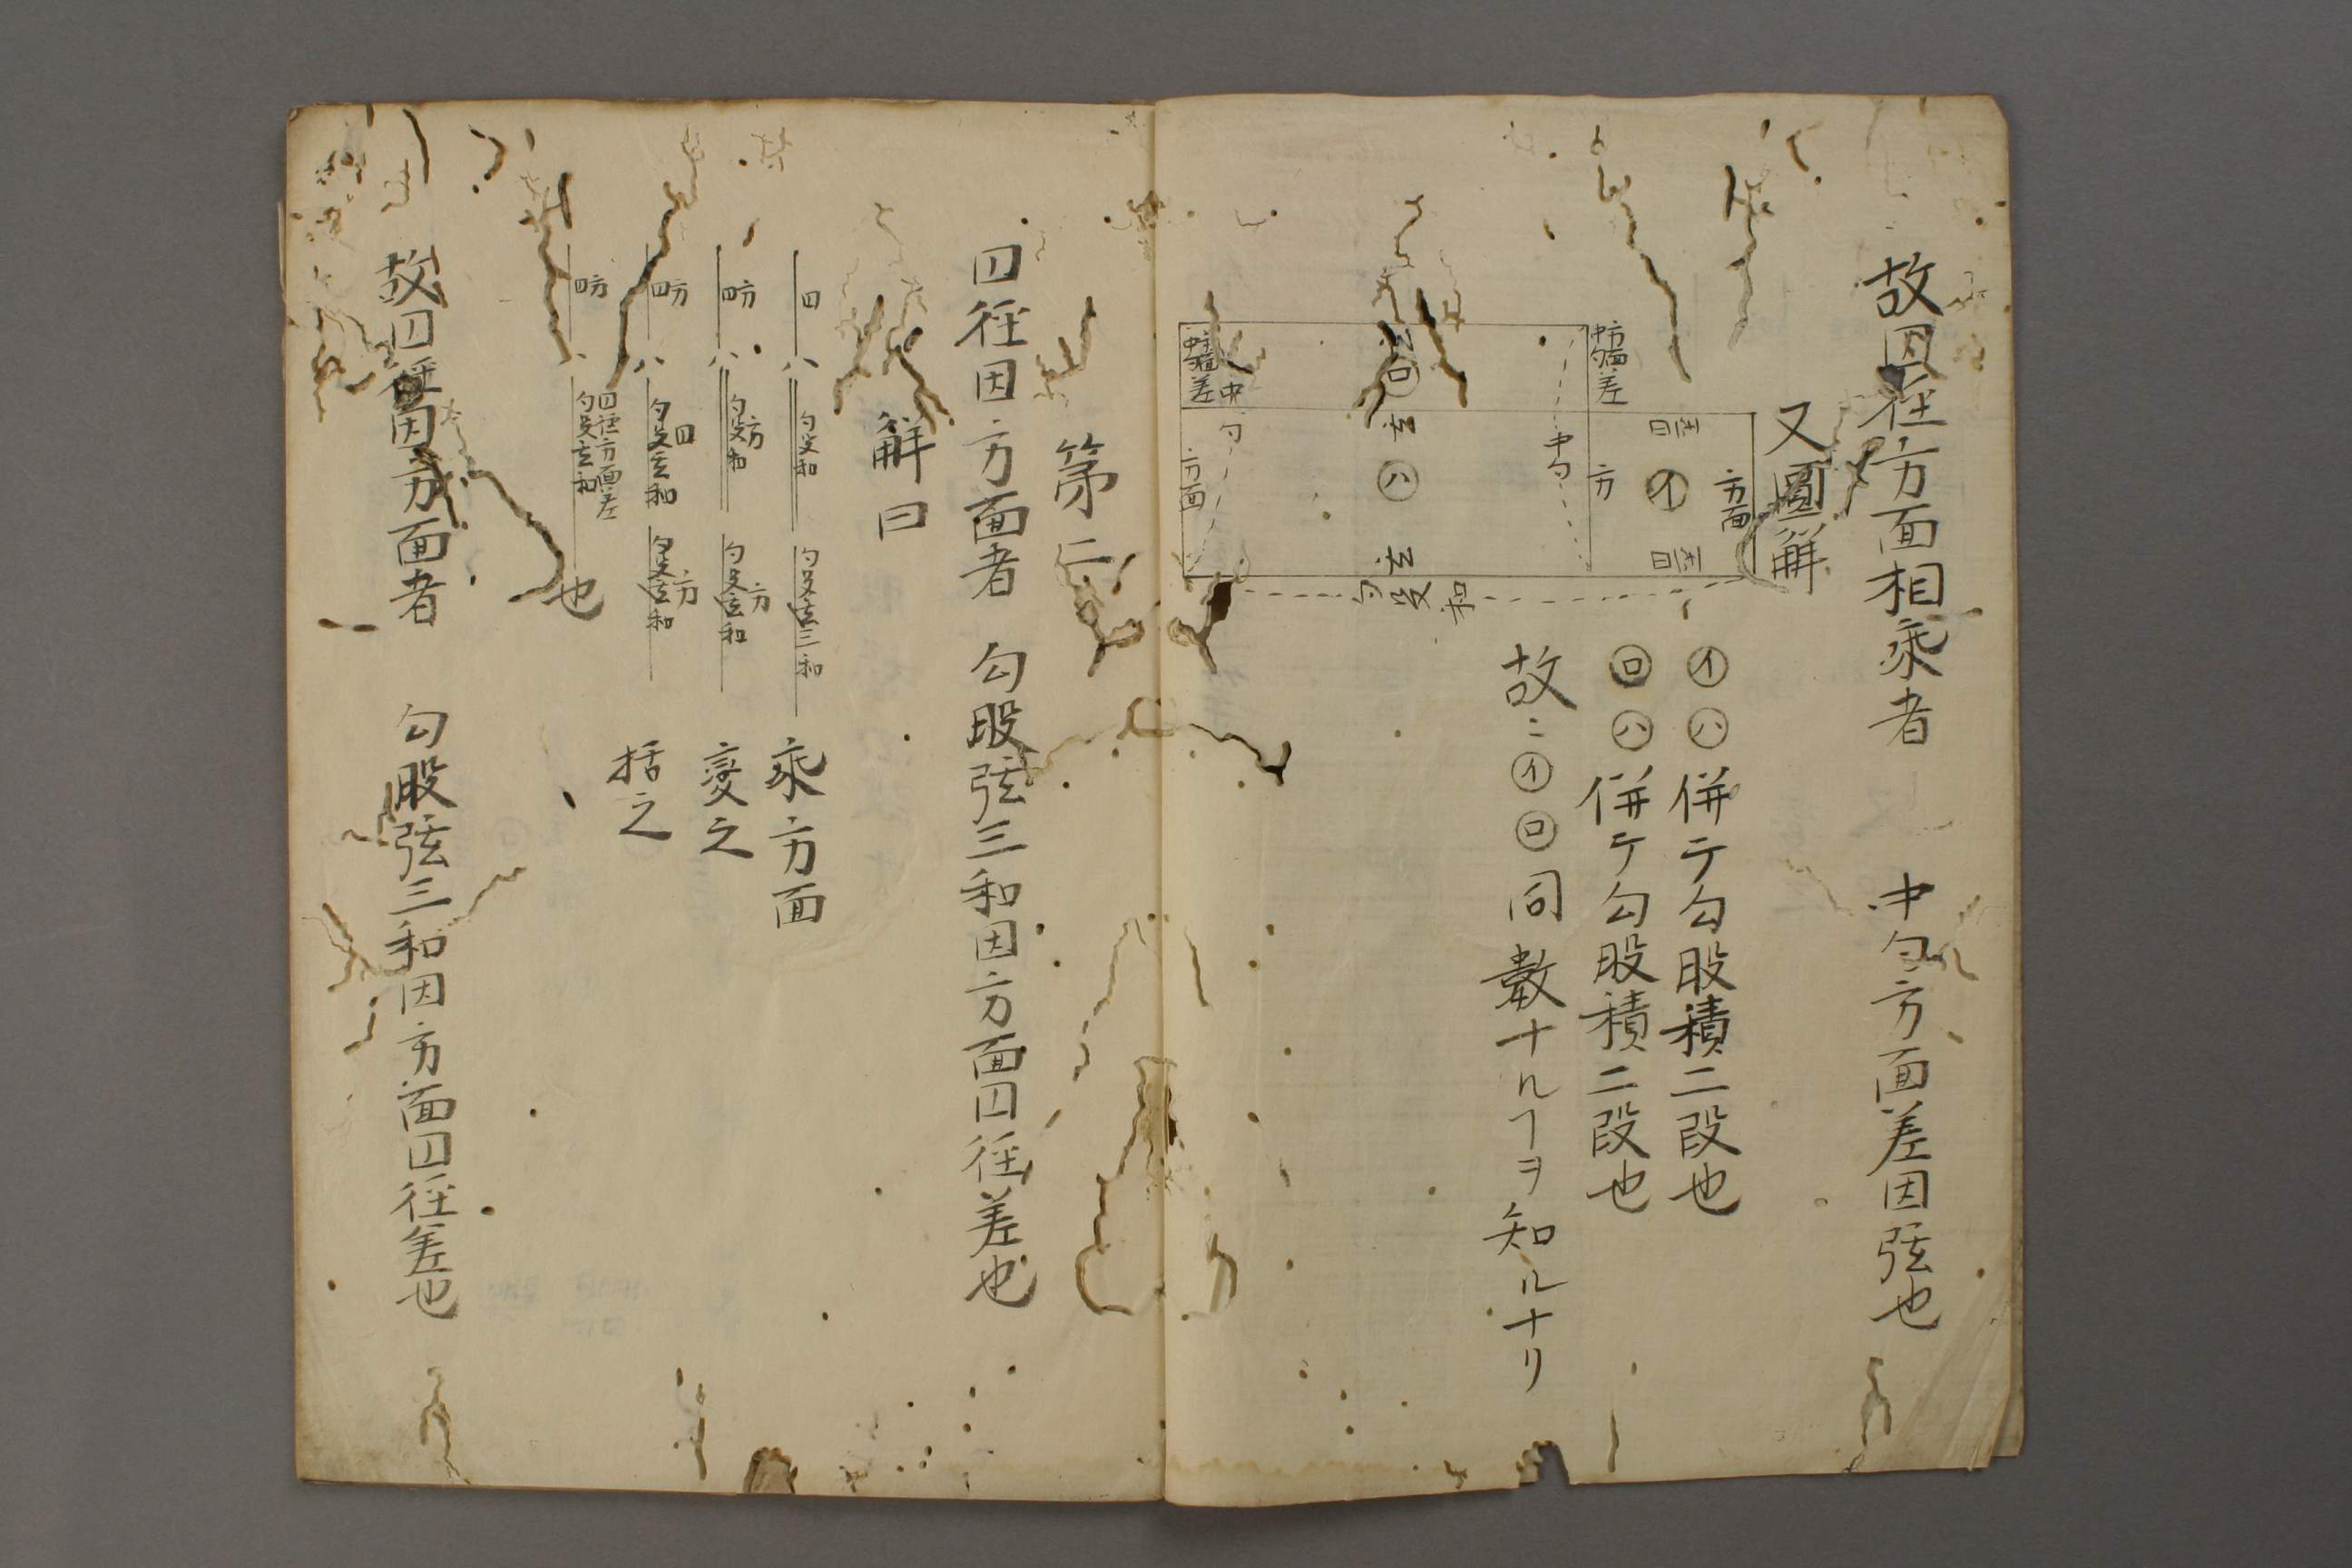 故円径方面相乗者　中勾方面差因弦也
又圖解
方面
円径
㋑
円径
方
中勾方面差
中勾
玄
㋺
玄
㋩
玄
中勾方面差
中勾
方面
勾殳和
㋑㋩併テ勾股積二段也
㋺㋩併テ勾股積二段也
故ニ㋑㋺同數ナルヿヲ知ルナリ
第二
円径因方面者　勾股弦三和因方面円径差也
解曰
円
勾殳和
勾殳玄三和
乘方面
円方
勾殳和方
勾殳玄和方
変之
円方
勾殳玄和円
勾殳玄和方
括之
円方
円径方面差
勾殳玄和
也
故円径因方面者　勾股弦三和因方面円径差也